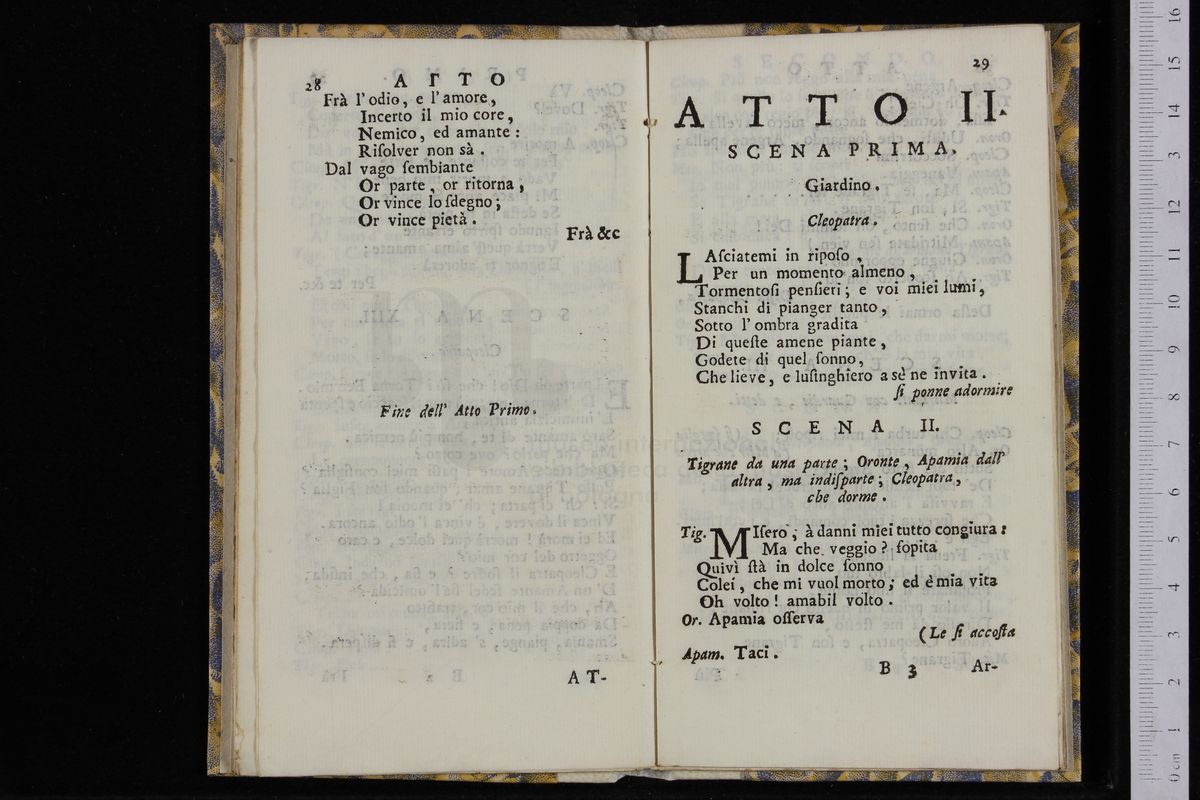 28 ATTO
Frà l'odio, e l'amore,
Incerto il mio core,
Nemico, ed amante:
Riſolver non sà.
Dal vago ſembiante
Or parte, or ritorna,
Or vince lo ſdegno;
Or vince pietà.
Frà &c
Fine dell' Atto Primo.
AT-
29
ATTO II.
SCENA PRIMA.
Giardino.
Cleopatra.
LAſciatemi in ripoſo,
Per un momento almeno,
Tormentoſi penſieri; e voi miei lumi,
Stanchi di pianger tanto,
Sotto l'ombra gradita
Di queſte amene piante,
Godete di quel ſonno,
Che lieve, e luſinghiero a sè ne invita.
ſi ponne adormire
SCENA II.
Tigrane da una parte; Oronte, Apamia dall'
altra, ma indiſparte; Cleopatra,
che dorme.
Tig. MIſero, à danni miei tutto congiura:
Ma che veggio? ſopita
Quivì ſtà in dolce ſonno
Colei, che mi vuol morto; ed è mia vita
Oh volto! amabil volto.
Or. Apamia oſſerva
(Le ſi accoſta
Apam. Taci.
B 3 Ar-